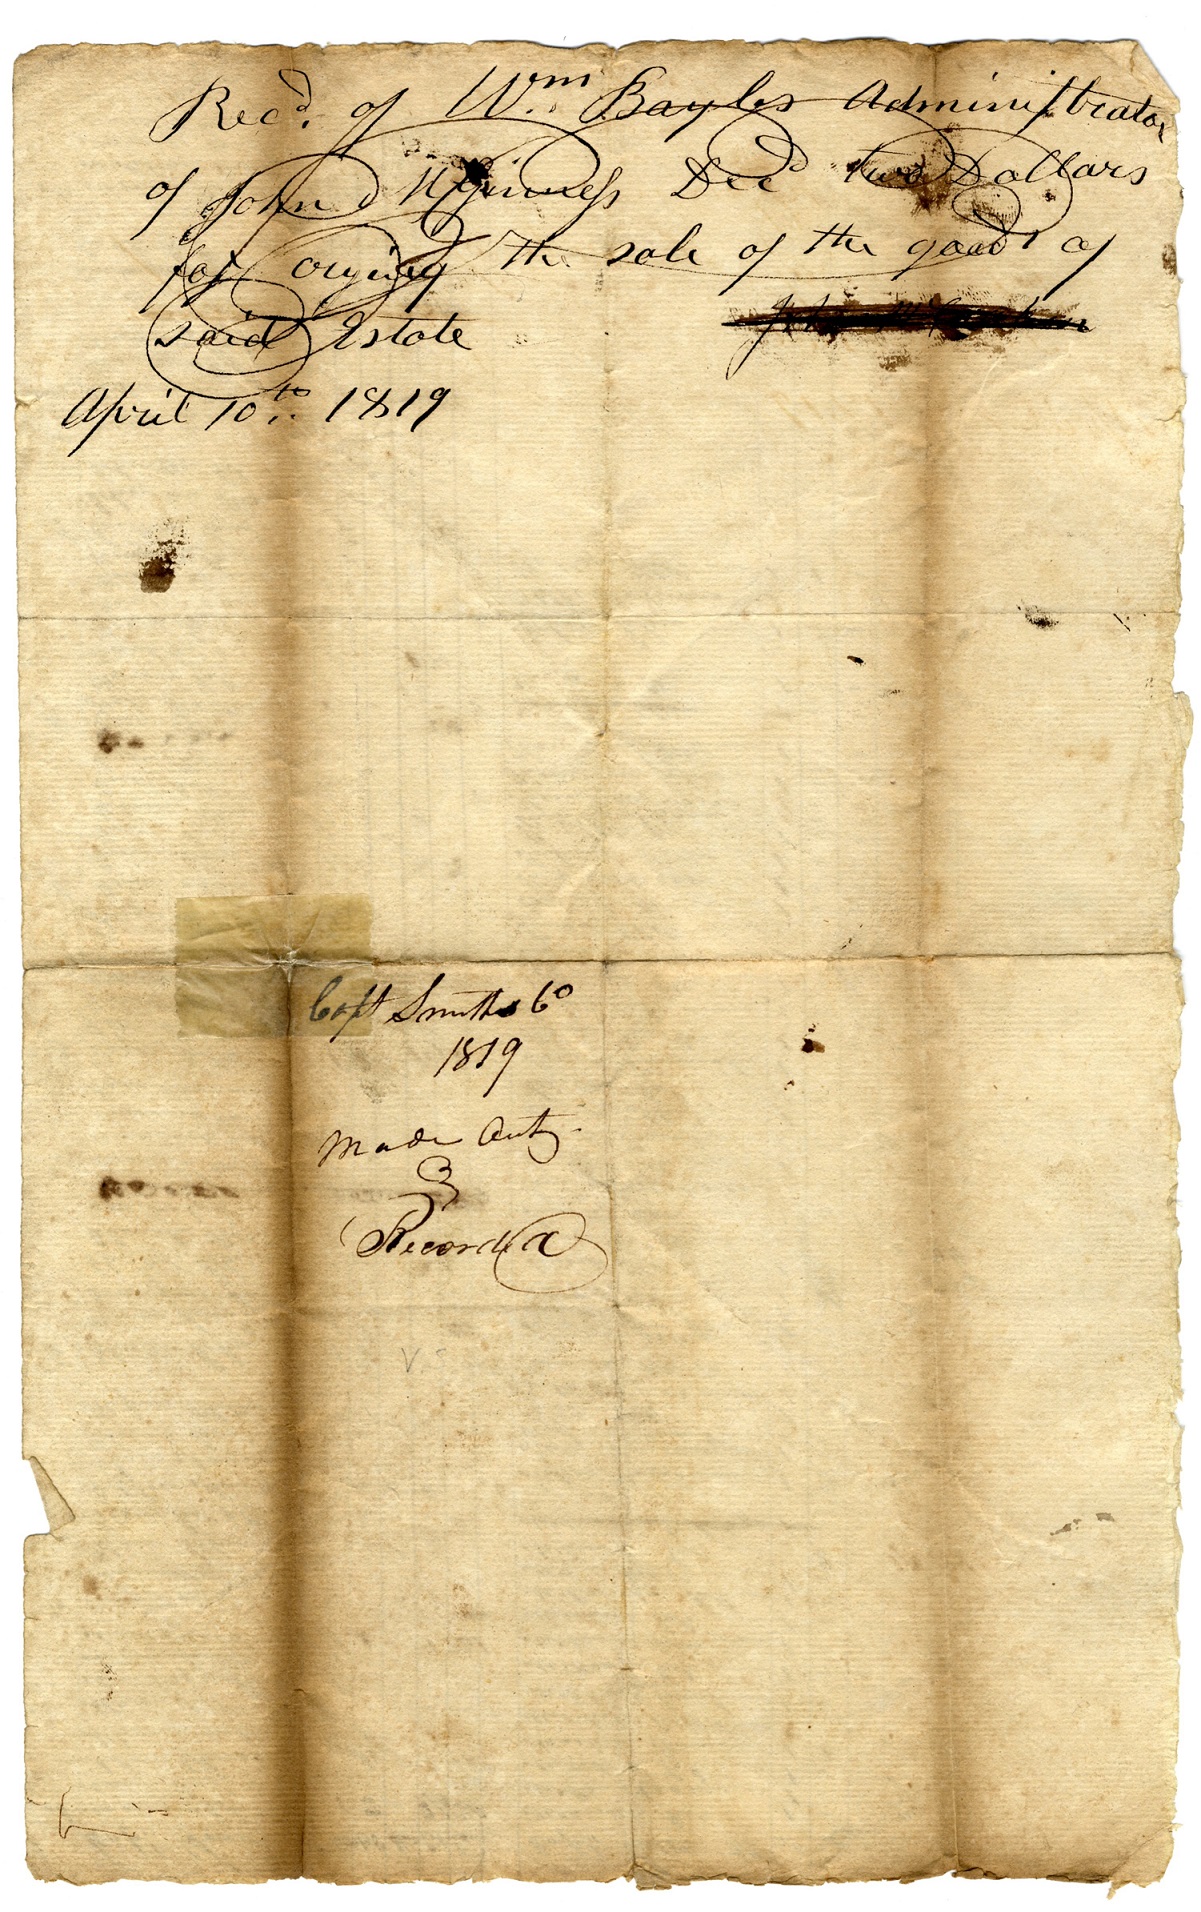 Recd. of Wm Bayles Administrator
of John McGinness Decd two Dollars
for crying the sale of the goods of
said Estate
April 10th. 1819
Capt Smiths Co
1819
Made Out
&
Recorded